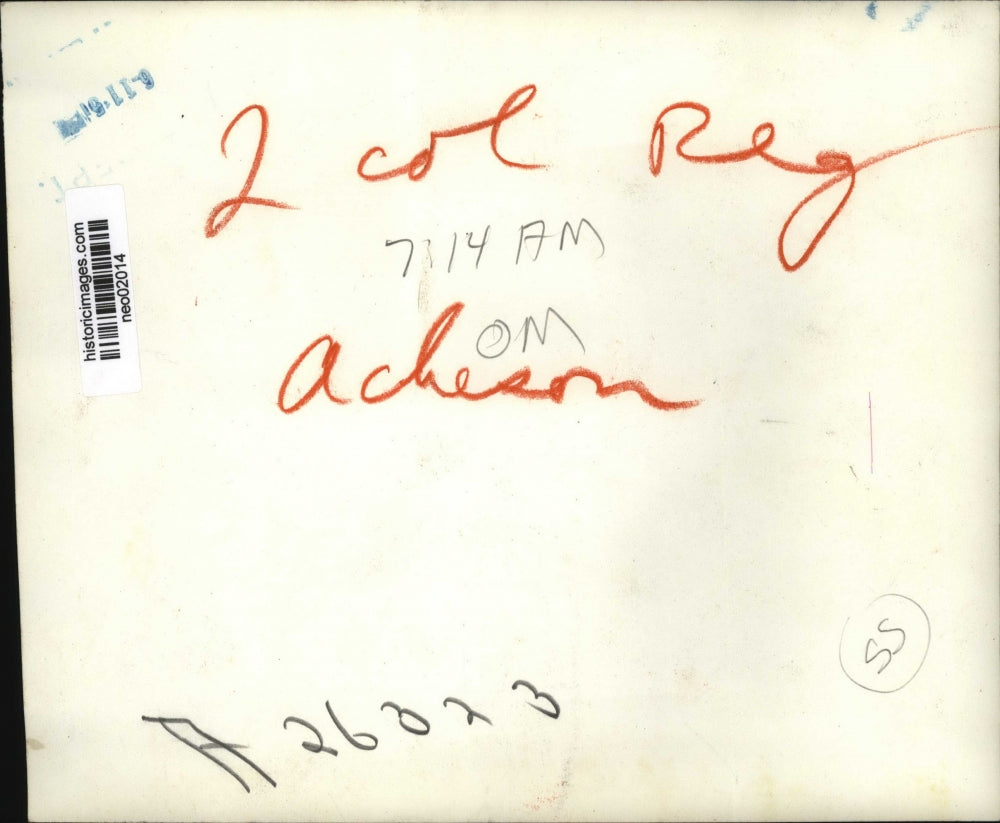 2 col Reg
7:14 AM
OM
Acheson
historicimages.com
neo02014
SS
A 26323